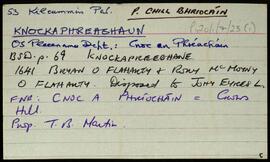 53 Kilcummin Par.
P. CHILL BHRIOCÁIN
P201/ /23(1)
KNOCKAPHREAGHAUN
OS Placename Dept.: Cnoc an Phréacháin
BSD p. 69 KNOCKAPREEGHANE
1641 BRYAN O FLAHARTY & RORY MC MOENY
O FLAHARTY. Disposed to JOHN EYRES L.
ENG: CNOC A PHRÍOCHÁIN = Crows
Hill.
Prop. T. B. Martin.